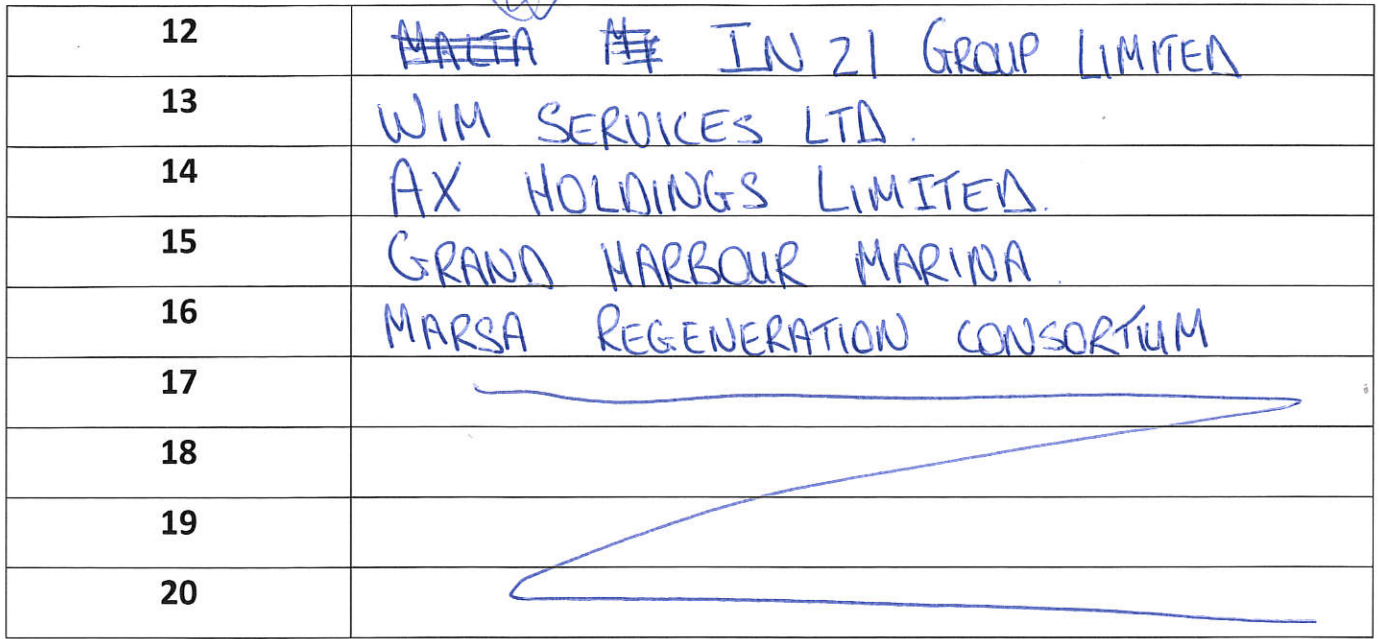 12 MALTA IN 21 GROUP LIMITED
13 WIM SERVICES LTD.
14 AX HOLDINGS LIMITED.
15 GRAND HARBOUR MARINA
16 MARSA REGENERATION CONSORTIUM
17
18
19
20